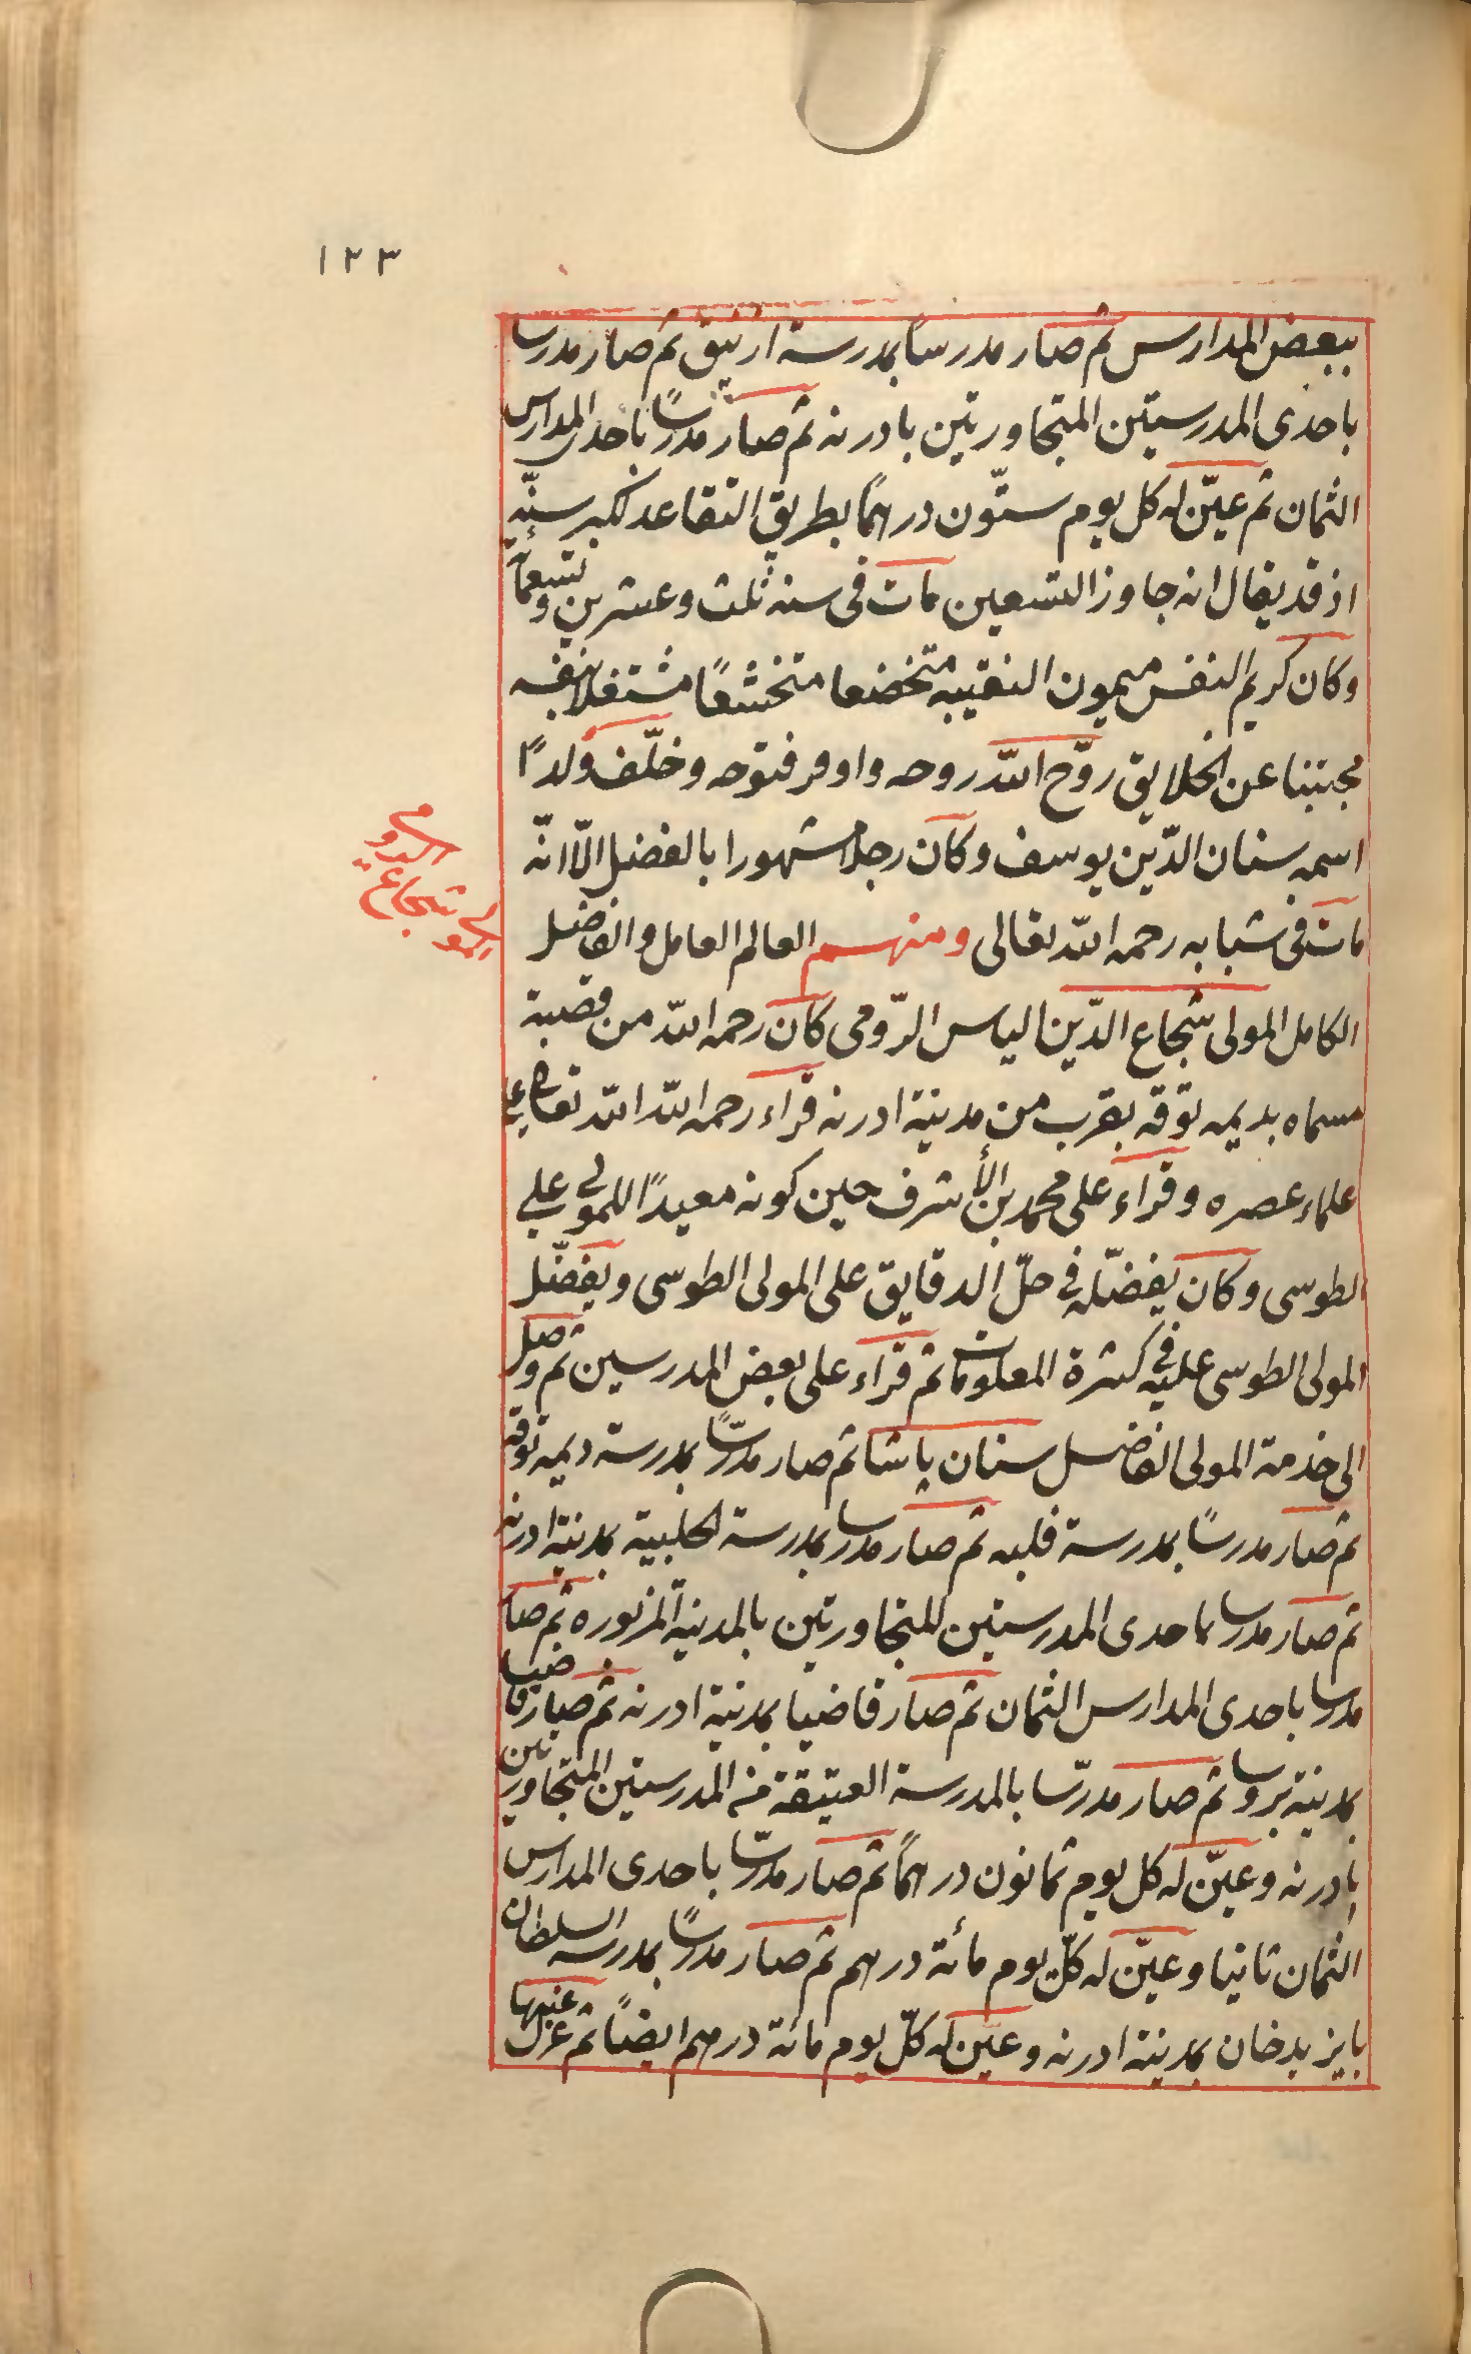 ١٢٣
ببعض المدارس ثم صار مدرسا بمدرسة ازنيق ثم صار مدرسا
باحدى المدرستين المتجاورتين بادرنه ثم صار مدرسًا باحدى المدارس
الثمان ثم عيّن له كل يوم ستّون درهمًا بطريق التقاعد لكبر سنّه
اذ قد يقال انه جاوز التسعين مات فى سنة ثلث وعشرين وتسعمائة
وكان كريم النفس ميمون النقيبه متخضعا متخشعًا مشتغلا بنفسه
مجتنبا عن الخلايق روّح الله روحه واوفر فتوحه وخلّف ولدًا
اسمه سنان الدّين يوسف وكان رجلا مشهورا بالفضل الّا انّه
مات فى شبابه رحمه الله تعالى ومنهم العالم العامل والفاضل
المولى شجاع الرومى
الكامل المولى شجاع الدّين الياس الرّومى كان رحمه الله من قصبة
مسماه بديمه توقه بقرب من مدينة ادرنه قراء رحمه الله الله تعالى على
علماء عصره وقراء على محمد بن الأشرف حين كونه معيدًا للمولى على
الطوسى وكان يفضّله فى حلّ الدقايق على المولى الطوسى ويفضّل
المولى الطوسى عليه فى كثرة المعلومات ثم قراء على بعض المدرسين ثم وصل
الى خدمة المولى الفاضل سنان پاشا ثم صار مدرّسًا بمدرسة ديمه توقه
ثم صار مدرسًا بمدرسة فلبه ثم صار مدرسا بمدرسة الحلبية بمدينة ادرنه
ثم صار مدرسا باحدى المدرستين للتجاورتين بالمدينة المزبوره ثم صار
مدرسا باحدى المدارس الثمان ثم صار قاضيا بمدينة ادرنه ثم صار قاضيا
بمدينة بروسا ثم صار مدرّسا بالمدرسة العتيقة من المدرستين المتجاورتين
بادرنه وعيّن له كل يوم ثمانون درهمًا ثم صار مدرّسا باحدى المدارس
الثمان ثانيا وعيّن له كلّ يوم مائة درهم ثم صار مدرسًا بمدرسه السلطان
بايزيد خان بمدينة ادرنه وعيّن له كلّ يوم مائة درهم ايضًا ثم عزل عنها